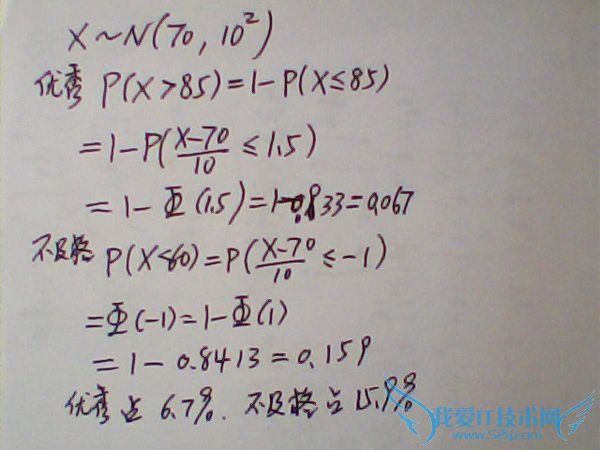 X~N(70, 10²)
优秀 P(X>85)=1-P(X≤85)
=1-P(\frac{X-70}{10}≤1.5)
=1-Φ(1.5)=1-0.933=0.067
不及格 P(X<60)=P(\frac{X-70}{10}≤-1)
=Φ(-1)=1-Φ(1)
=1-0.8413=0.159
优秀占 6.7%. 不及格占15.9%
我爱IT技术网